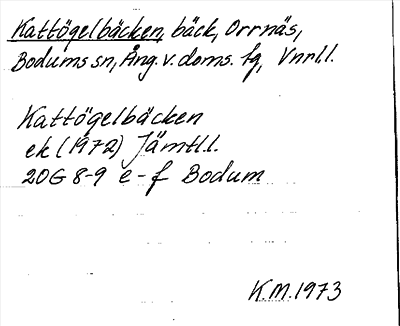 Kattögelbäcken, bäck, Orrnäs,
Bodums sn, Ång. v. doms. fg, Vnrl.l.
Kattögelbäcken
ek (1972) Jämtl.l.
20G 8-9 e-f Bodum
K.M. 1973